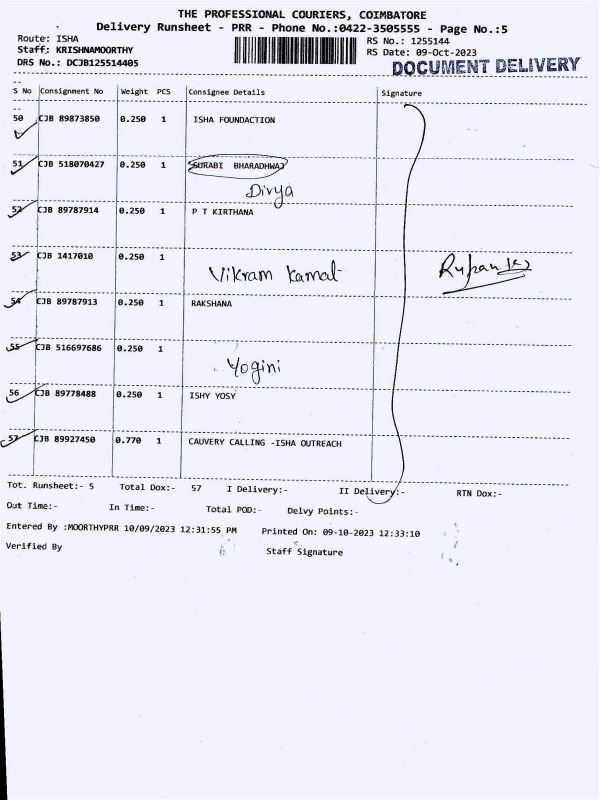 THE PROFESSIONAL COURIERS, COIMBATORE
Delivery Runsheet - PRR - Phone No.:0422-3505555 - Page No.:5
Route: ISHA
RS No.: 1255144
Staff: KRISHNAMOORTHY
RS Date: 09-Oct-2023
DRS No.: DCJB125514405
DOCUMENT DELIVERY
S No Consignment No Weight PCS Consignee Details Signature
50 CJB 89873850 0.250 1 ISHA FOUNDACTION
51 CJB 518070427 0.250 1 SURABI BHARADHWAJ
Divya
52 CJB 89787914 0.250 1 P T KIRTHANA
53 CJB 1417010 0.250 1
Vikram Kamal
54 CJB 89787913 0.250 1 RAKSHANA
55 CJB 516697686 0.250 1
Yogini
56 CJB 89778488 0.250 1 ISHY YOSY
57 CJB 89927450 0.770 1 CAUVERY CALLING -ISHA OUTREACH
Tot. Runsheet:- 5 Total Dox:- 57 I Delivery:- II Delivery:- RTN Dox:-
Out Time:- In Time:- Total POD:- Delvy Points:-
Entered By :MOORTHYPRR 10/09/2023 12:31:55 PM Printed On: 09-10-2023 12:33:10
Verified By Staff Signature